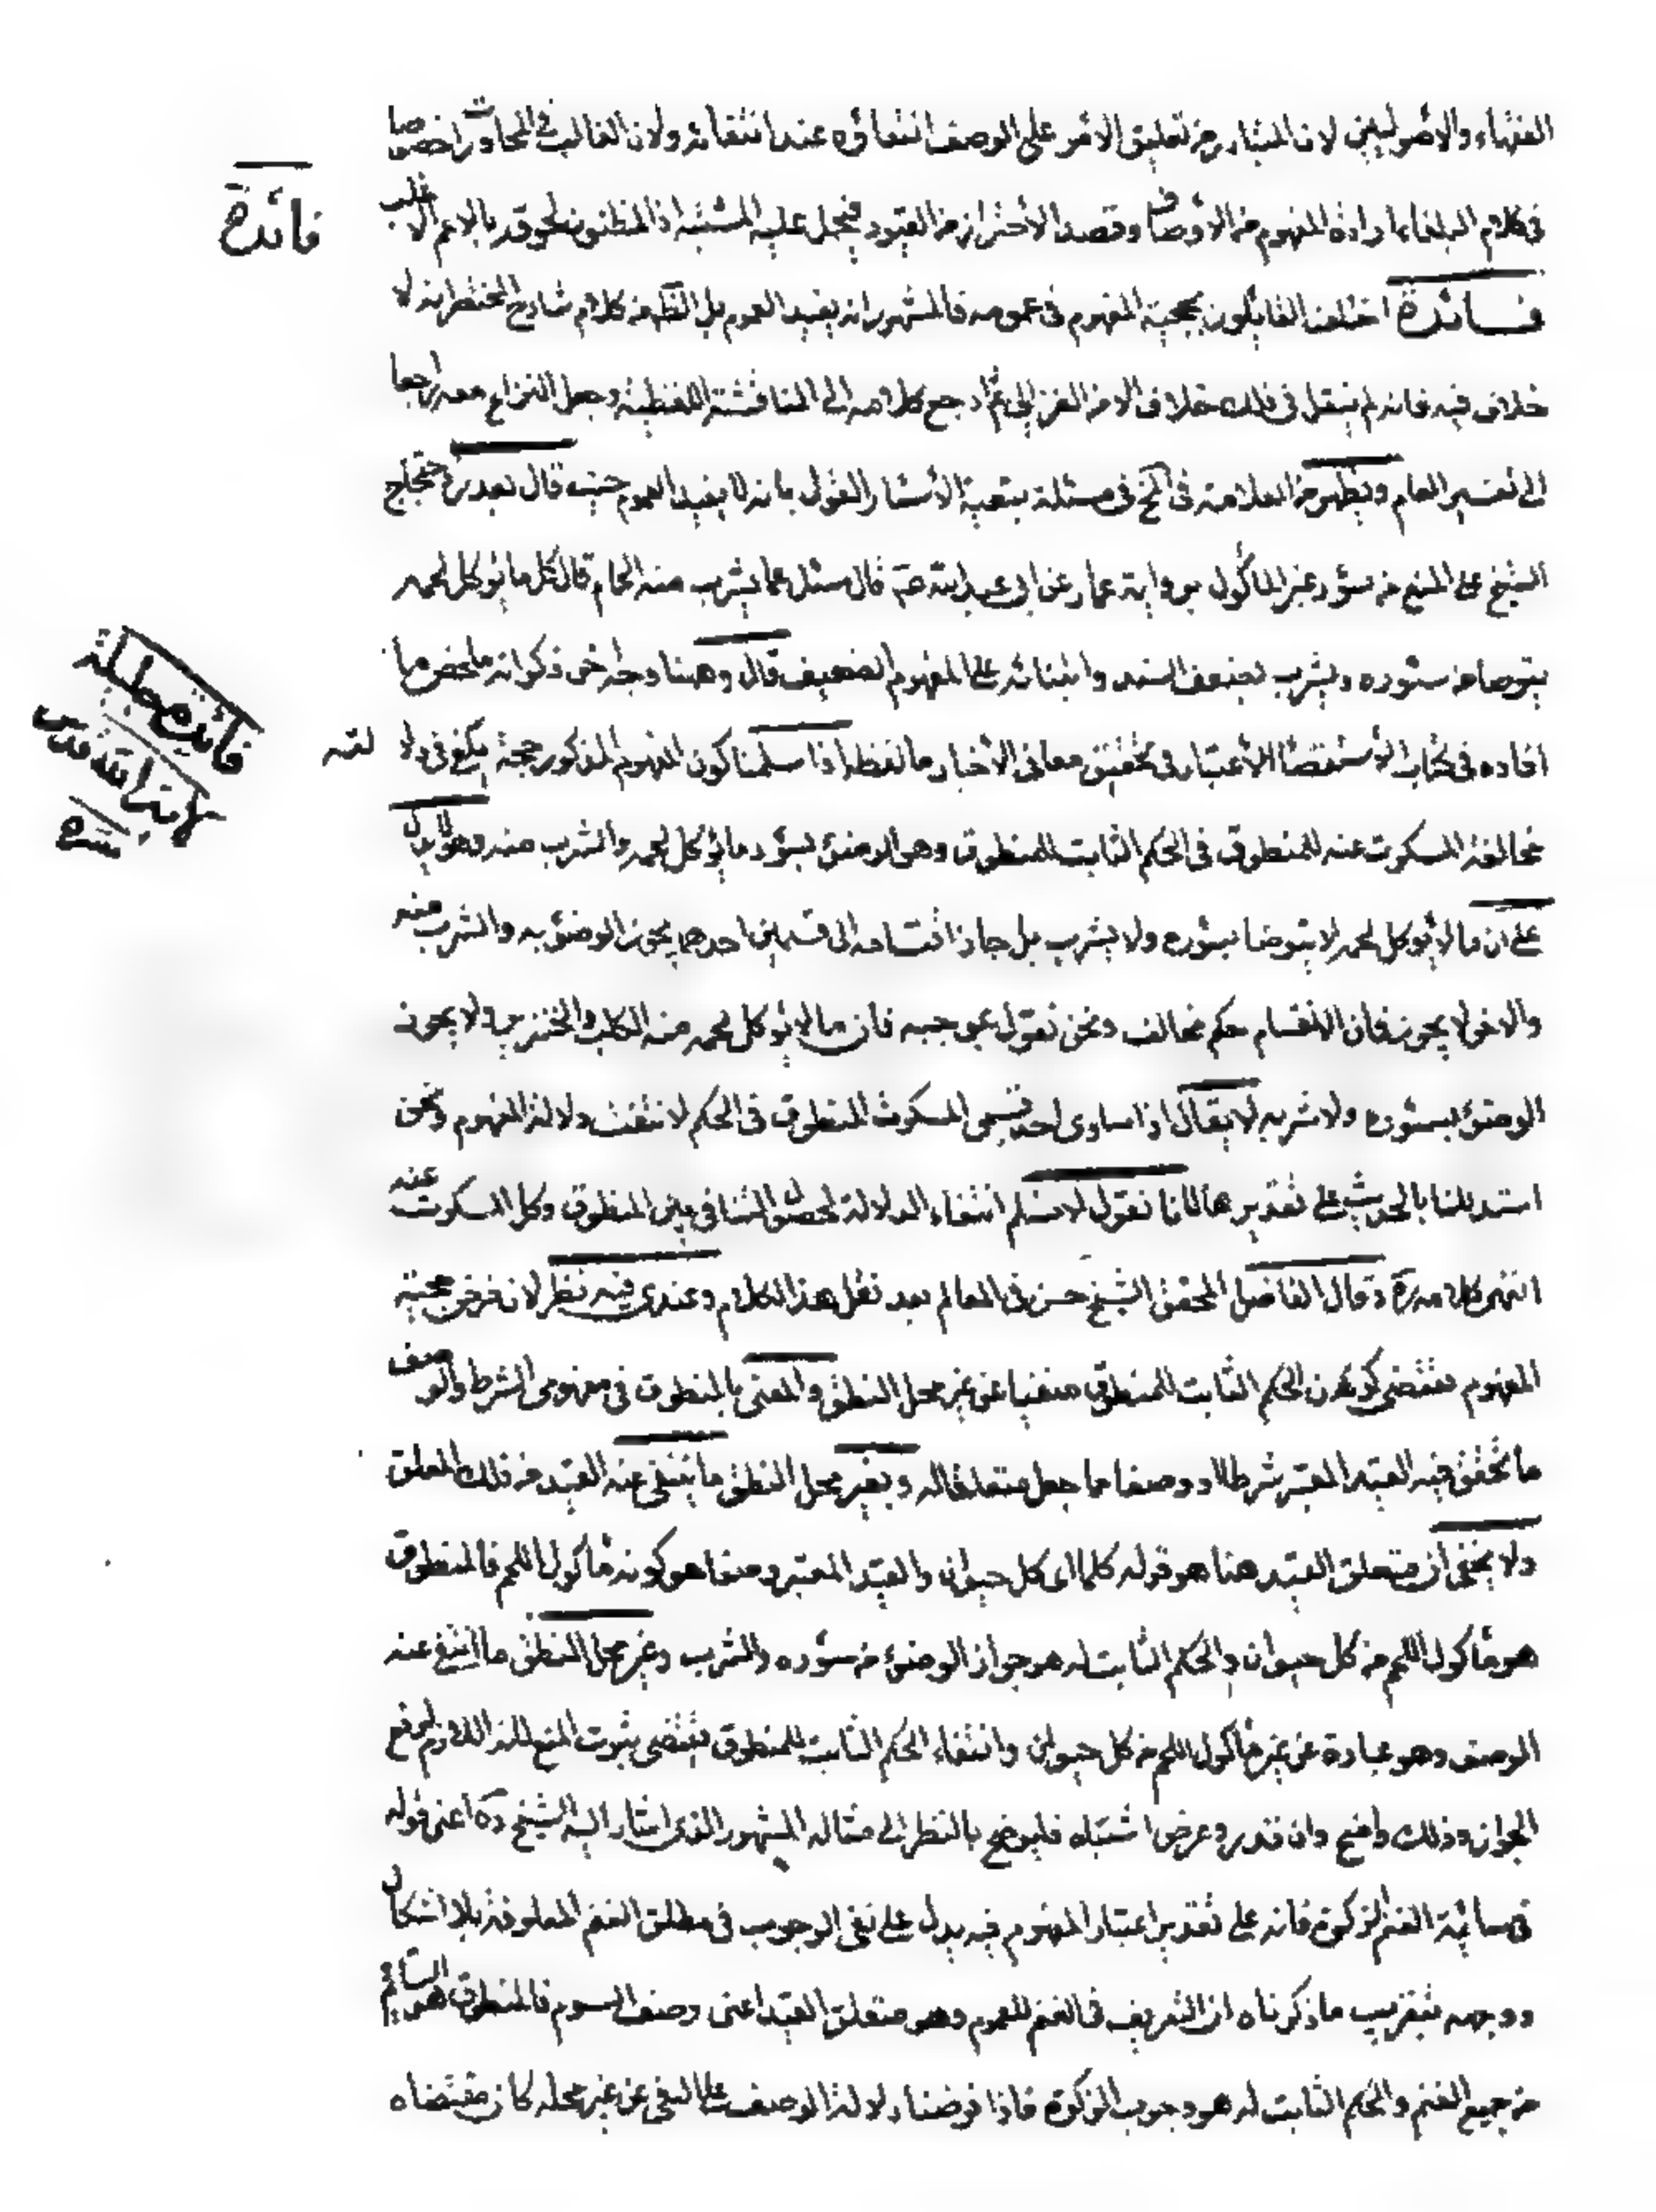 الفقهاء والاصوليين لان المتبادر من تعليق الامر على الوصف انتفاؤه عند انتفائه ولان الغالب في المحاورات خصوصا
في كلام البلغاء ارادة المفهوم من الأوصاف وقصد الأحتراز من القيود فيحمل عليه المشتبه اذ المظنون لحوقه بالاعم الاغلب
فائدة
فائدة اختلف القائلون بحجية المفهوم في عمومه فالمشهور انه يفيد العموم بل الظ من كلام شارح المختصر انه لا
خلاف فيه فانه لم ينقل في ذلك خلافا الا من الغزالي ثم ارجع كلامه الى المناقشة اللفظية وجعل النزاع معه راجعا
الى تفسير العام ويظهر من العلامة في لخ في مسئلة تبعية الأسئار القول بانه لا يفيد العموم حيث قال بعد رد احتجاج
الشيخ على المنع من سؤر غير المأكول برواية عمار عن ابي عبد الله عم قال سئل عما يشرب منه الحمام قال كل ما يؤكل لحمه
يتوضأ من سئوره ويشرب بضعف السند وابتنائه على المفهوم الضعيف قال وههنا وجه اخر ذكر انه ملخص ما
افاده في كتاب الأستقصاء الأعتبار في تحقيق معاني الأخبار ما لفظه اذا سلمنا كون المفهوم المذكور حجة يكفي في دلا لته
فائدة مطلة
لاية الله قدس
سره
مخالفة المسكوت عنه للمنطوق في الحكم الثابت للمنطوق وهو الوضوء بسؤر ما يؤكل لحمه والشرب منه وهو لا يدل
على ان ما لا يؤكل لحمه لا يتوضا بسؤره ولا يشرب بل جاز انقسامه الى قسمين احدهما يجوز الوضوء به والشرب منه
والاخر لا يجوز فان الانقسام حكم مخالف ونحن نقول بموجبه فان ما لا يؤكل لحمه منه الكلب والخنزير ولا يجوز
الوضوء بسئوره ولا شربه لا يقال اذا ساوى احد قسمي المسكوت المنطوق في الحكم لانتفت دلالة المفهوم ونحن
استدللنا بالحديث على تقديرها لانا نقول لا نسلم انتفاء الدلالة لحصول التنافي بين المنطوق وكل المسكوت عنه
انتهى كلامه ره وقال الفاضل المحقق الشيخ حسن في المعالم بعد نقل هذا الكلام وعندي فيه نظر لان فرض حجية
المفهوم مقتضي كون الحكم الثابت للمنطوق منفيا عن غير محل النطق والمعنى بالمنطوق في مفهومي الشرط والوصف
ما تحقق فيه القيد المعتبر شرطا او وصفا مما جعل متعلقا له وبغير محل النطق ما ينتفي عنه القيد من ذلك المعلق
ولا يخفى ان متعلق القيد هنا هو قوله كلما اي كل حيوان والقيد المعتبر وصفا هو كونه مأكول اللحم فالمنطوق
هو مأكول اللحم من كل حيوان والحكم الثابت له هو جواز الوضوء من سؤره والشرب وغير محل النطق ما انتفى عنه
الوصف وهو عبارة عن غير مأكول اللحم من كل حيوان وانتفاء الحكم الثابت للمنطوق يقتضي ثبوت المنع له اللازم لرفع
الجواز وذلك واضح وان قدر وعرض اشتباه فليوضح بالنظر الى مثاله المشهور الذي اشار اليه الشيخ ره اعني قوله
في سائمة الغنم الزكوة فانه على تقدير اعتبار المفهوم فيه يدل على نفي الوجوب في مطلق الغنم المعلوفة بلا اشكال
ووجهه بتقريب ما ذكرناه ان التعريف في الغنم للعموم وهو متعلق القيد اعني وصف السوم فالمنطوق هو السائم
من جميع الغنم والحكم الثابت له هو وجوب الزكوة فاذا فرضنا دلالة الوصف على النفي عن غير محله كان مقتضاه